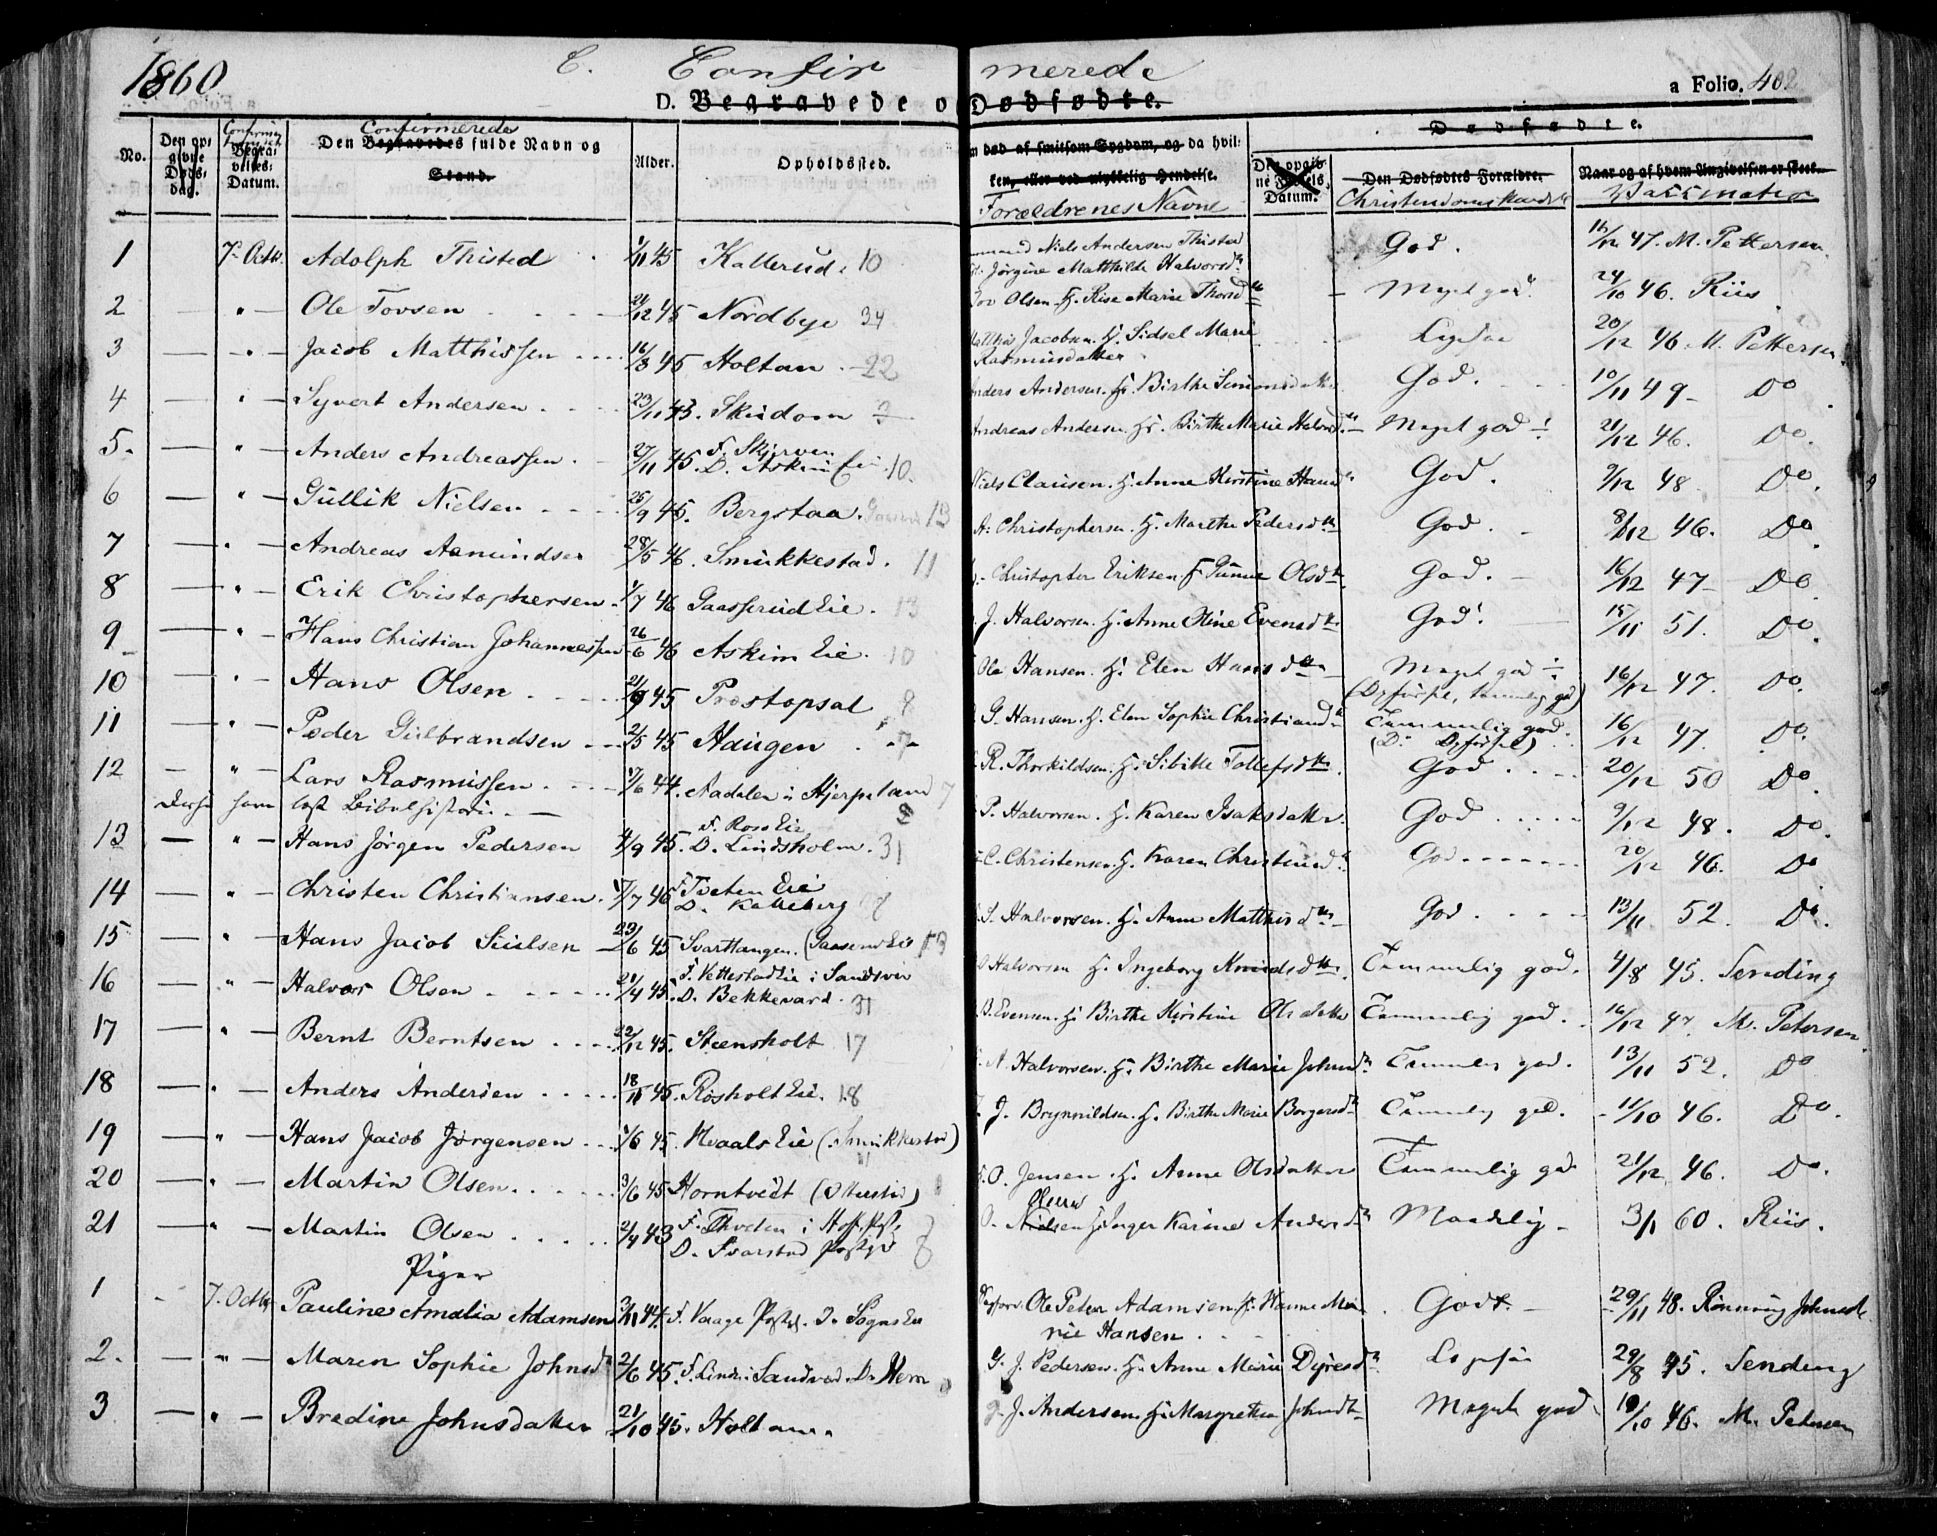 1860 C. Confirmerede a Folio. 402
D. Begravede o Dødfødte.
Dødfødte.
No. Den opgivne Dødsdag. Begravelses-Datum. Confirmeredes Den Begravedes fulde Navn og Stand. Alder. Opholdssted. død af smitsom Sygdom, og da hvilken, eller ved ulykkelig Hendelse. Forældrenes Navne Den opgivne Fødsels Datum. Den Dødfødtes Forældre. Christendomskundsk Naar og af hvem Angivelsen er skeet. Vaccinatio
1 — 7 Octb. Adolph Thisted 1/11 45 Kallerud 10 Niels Andersen Thisted God. 16/12 47. M. Pettersen
Jørgine Matthilde Halvorsd
2 — " — Ole Tovsen 21/12 45 Nordbye 34 Tov Olsen H. Rise Marie Thorsd Meget god. 24/10 46. Riis.
3 — " — Jacob Matthissen 16/8 45 Holtan 22 Matthis Jacobsen H. Sidsel Marie Ligesaa 20/12 46. M. Pettersen
Rasmusdatter
4 — " — Syvert Andersen 23/11 45. Skidom 3 Anders Andersen. H. Birthe Simonsdatter God. 10/11 49 Do
5. — " — Anders Andreassen 27/11 45. F. Skjerven Andreas Andersen H. Birthe Marie Halvd Meget god 21/12 46. Do.
D. Askim Eie 10.
6 — " — Gullik Nielsen 25/9 45. Bergstaa. 13 Niels Clausen. H. Anne Kirstine Hansd God. 9/12 48 Do.
7 — " — Andreas Asmundsen 28/5 46. Smukkestad. 11 A: Christophersen. H. Marthe Pedersd God. 8/12 46. Do
8 — " — Erik Christophersen. 1/7 46 Gaasserud Eie. 13 Christopher Eriksen H Gunne Olsd God. 16/12 47 Do
9 — " — Hans Christian Johannessen 26/6 46 Askim Eie. 10 J. Halvorsen. H. Anne Oline Evensd God. 15/11 51. Do.
10 — " — Hans Olsen 21/9 45 Prostopsal 8 Ole Hansen. H. Elen Hansd Meget god 16/12 47. Do.
(Opførsel, tammelig god)
11 — " — Peder Gulbrandsen 2/5 45 Haugen 7 G. Hansen. H. Elen Sophie Christiansd Tammelig god. 16/12 47. Do.
(D: Opførsel)
12 — " — Lars Rasmussen 17/6 44. Aadalen i Hjerpeland 7 R. Thorkildsen. H. Sibille Tollefsd God. 20/12 50 Do
læst Bibelhistorie. — 8
13 — " — Hans Jørgen Pedersen 4/9 45. F. Roos Eie P. Halvorsen. H. Karen Isaksdatter. God 9/12 48. Do.
D. Lindsholm. 31
14 — " — Christen Christiansen. 17/7 46 F. Tveten Eie C. Christensen. H. Karen Christiansd God 20/12 46. Do
D. Kalleberg 28
15 — " — Hans Jacob Siulsen 23/6 45 Svarttangen. (Gaaserud Eie 13 S. Halvorsen. H. Anne Matthisd God 13/11 52. Do.
16 — " — Halvor Olsen 21/4 45. F. Vettestad Eie i Sandsvær O Halvorsen H. Ingeborg Knudsd Tammelig god. 4/8 45. Sending
D. Bekkevard. 31
17 — " — Bernt Berntsen 22/12 45. Steensholt 17 B. Evensen. H. Birthe Kirstine Olsdatter Tammelig god. 16/12 47. M. Petersen
18 — " — Anders Andersen 18/11 45. Rosholt Eie. 18 A. Halvorsen. H. Birthe Marie Johnsd Tammelig god. 13/11 52. Do
19 — " — Hans Jacob Jørgensen 1/6 45. Hvaals Eie (Smukkestad) 11 J. Brynnildsen. H. Birthe Marie Borgersd Tammelig god. 11/10 46. Do.
20 — " — Martin Olsen 3/6 45 Horntvedt (Ollerstad) O. Jensen. H. Anne Olsdatter Tammelig god 21/12 46. Do.
21 — " — Martin Olsen 2/4 43 F. Thveden i Hoff Pgd O. Nielsen H. Inger Karine Andersd Maadelig 3/1 60. Riis.
D. Svarstad Præstegd 8
Piger
1 7. Octb. Pauline Amalia Adamsen 2/11 44. F. Vaage D. Sogns Eie Ole Peter Adamsen H. Hanne Marie Hansen Godt. 29/11 48. Rønnaug Johnsd.
2. — " — Maren Sophie Johnsd 2/6 45. F. Lind i Sandsvær. D. Hem J. Pedersen. H. Anne Marie Dyresd Ligesaa 29/8 45. Sending
3 — " — Bredine Johnsdatter 21/10 45. Holtan. J. Andersen. H. Margrethe Johnsd Meget god 19/10 46. M. Petersen